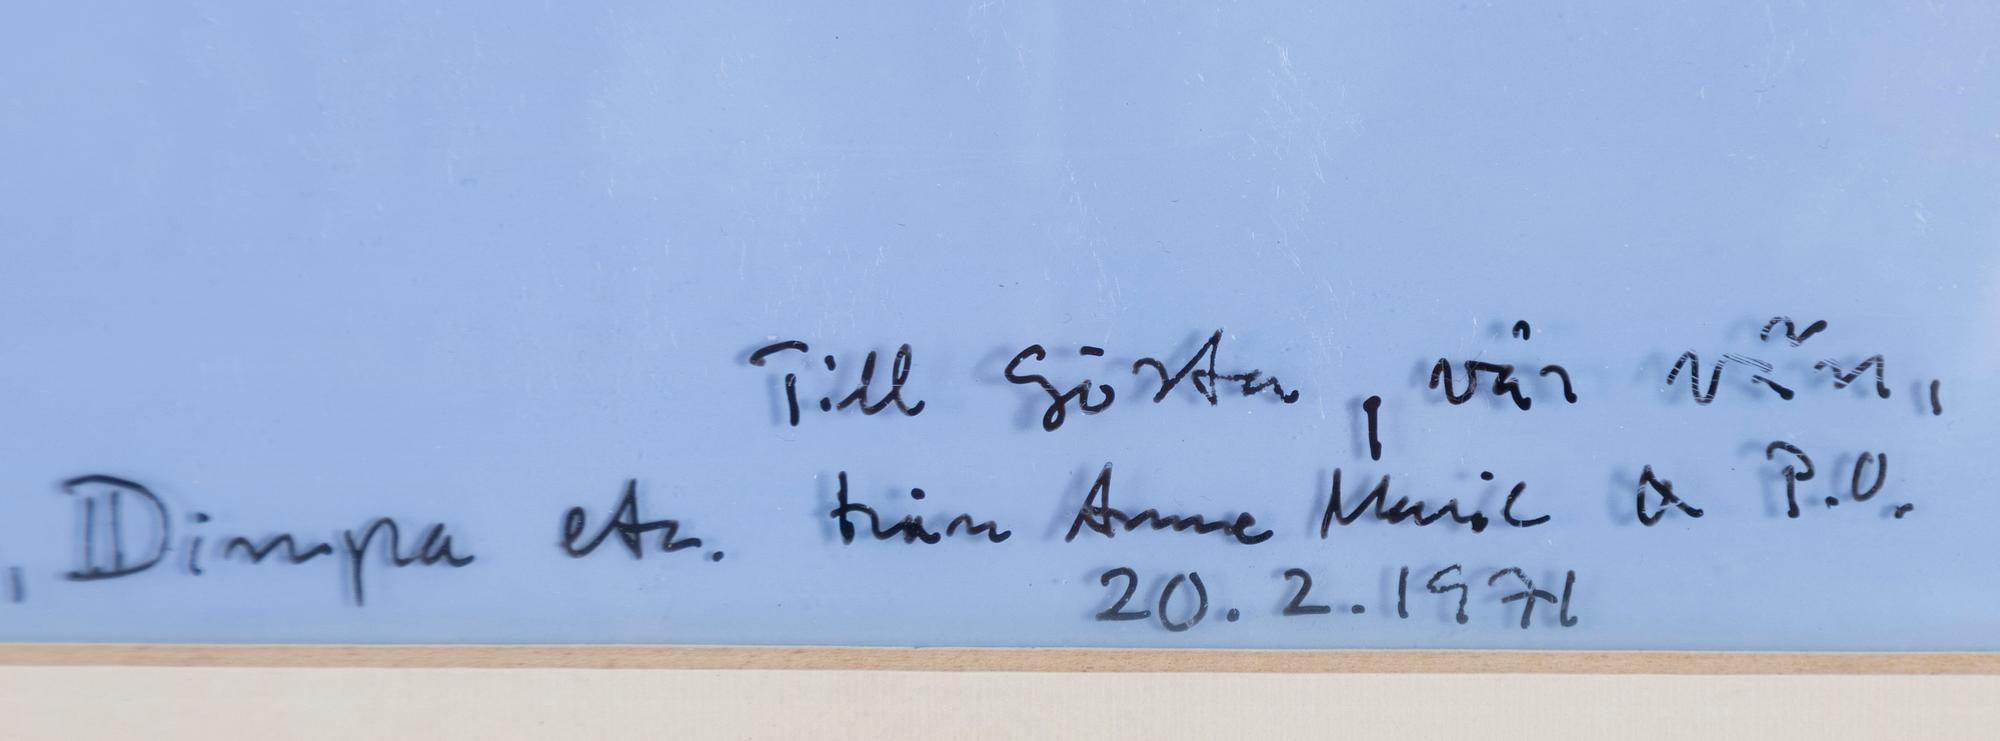 Till Gösta, vår vän,
, Dimpa etc. från Anne Marie & P.O.
20.2.1971